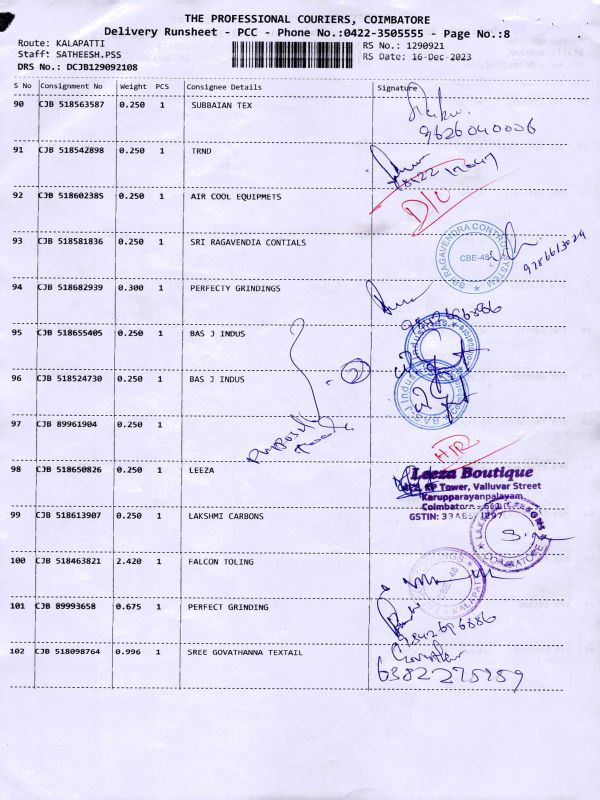 THE PROFESSIONAL COURIERS, COIMBATORE
Delivery Runsheet - PCC - Phone No.:0422-3505555 - Page No.:8
Route: KALAPATTI
Staff: SATHEESH.PSS
DRS No.: DCJB129092108
RS No.: 1290921
RS Date: 16-Dec-2023
S No Consignment No Weight PCS Consignee Details Signature
90 CJB 518563587 0.250 1 SUBBAIAN TEX
9626040006
91 CJB 518542898 0.250 1 TRND
92 CJB 518602385 0.250 1 AIR COOL EQUIPMETS
D/C
93 CJB 518581836 0.250 1 SRI RAGAVENDIA CONTIALS
SRI RAGAVENDRA CONTROL SYSTEM
CBE-48
94 CJB 518682939 0.300 1 PERFECTY GRINDINGS
9842696886
95 CJB 518655405 0.250 1 BAS J INDUS
2
96 CJB 518524730 0.250 1 BAS J INDUS
97 CJB 89961904 0.250 1
98 CJB 518650826 0.250 1 LEEZA
Leeza Boutique
KP Tower, Valluvar Street
Karupparayanpalayam
Coimbatore
GSTIN:
99 CJB 518613907 0.250 1 LAKSHMI CARBONS
COIMBATORE
100 CJB 518463821 2.420 1 FALCON TOLING
101 CJB 89993658 0.675 1 PERFECT GRINDING
9842696886
102 CJB 518098764 0.996 1 SREE GOVATHANNA TEXTAIL
6382275959